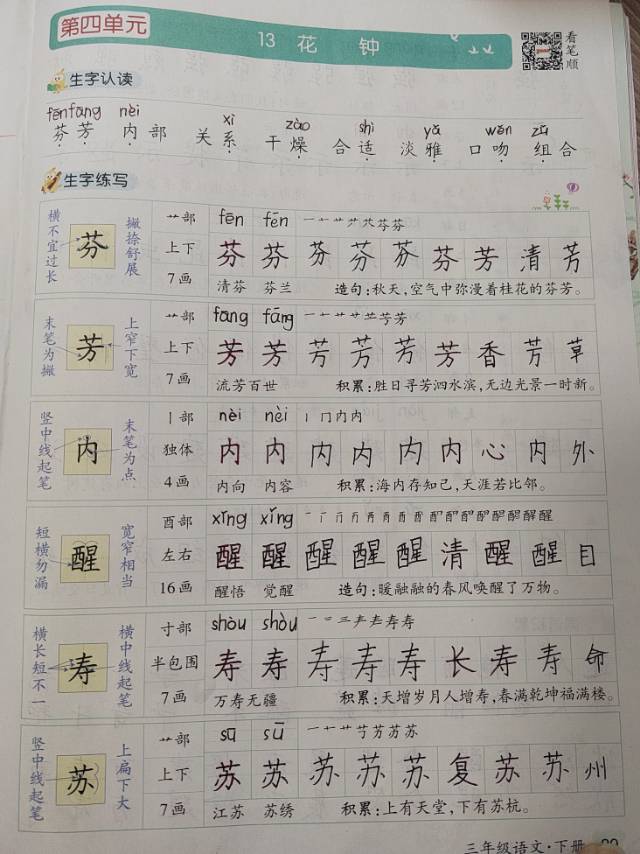 第四单元
13 花 钟
看笔顺
生字认读
fēnfāng nèi xì zào shì yǎ wěn zǔ
芬芳 内部 关系 干燥 合适 淡雅 口吻 组合
生字练写
横不宜过长 芬 撇捺舒展
艹部 fēn fēn
上下 芬 芬 芬 芬 芬 芬 芳 清 芳
7画 清芬 芬兰 造句:秋天,空气中弥漫着桂花的芬芳。
末笔为撇 芳 上窄下宽
艹部 fāng fāng
上下 芳 芳 芳 芳 芳 芳 香 芳 草
7画 流芳百世 积累:胜日寻芳泗水滨,无边光景一时新。
竖中线起笔 内 末笔为点
丨部 nèi nèi 丨冂内内
独体 内 内 内 内 内 内 心 内 外
4画 内向 内容 积累:海内存知己,天涯若比邻。
短横勿漏 醒 宽窄相当
酉部 xǐng xǐng
左右 醒 醒 醒 醒 醒 清 醒 醒 目
16画 醒悟 觉醒 造句:暖融融的春风唤醒了万物。
横长短不一 寿 横中线起笔
寸部 shòu shòu
半包围 寿 寿 寿 寿 寿 长 寿 寿 命
7画 万寿无疆 积累:天增岁月人增寿,春满乾坤福满楼。
竖中线起笔 苏 上扁下大
艹部 sū sū
上下 苏 苏 苏 苏 苏 复 苏 苏 州
7画 江苏 苏绣 积累:上有天堂,下有苏杭。
三年级语文·下册